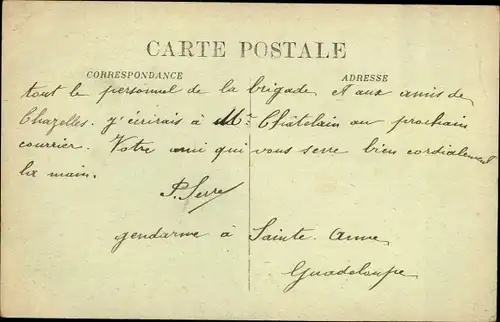 CARTE POSTALE
CORRESPONDANCE
ADRESSE
tout le personnel de la brigade et aux amis de
Chazelles. j'écrirais à Mr Châtelain au prochain
courrier. Votre ami qui vous serre bien cordialement
la main.
P. Serre
gendarme à Sainte. Anne
Guadeloupe